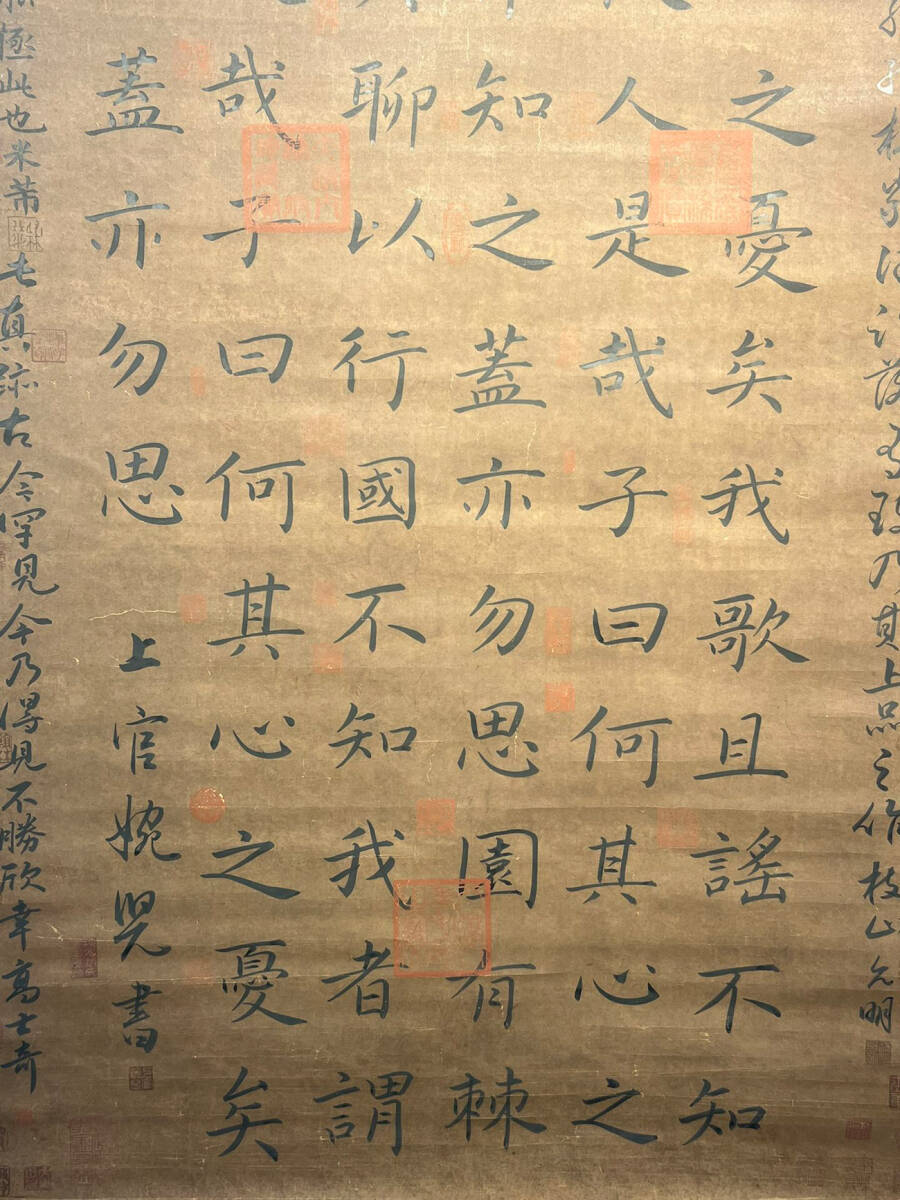 乃其上品之作枝山允明
之憂矣我歌且謠不知
人是哉子曰何其心之
知之蓋亦勿思園有棘
聊以行國不知我者謂
哉子曰何其心之憂矣
蓋亦勿思
上官婉兒書
極此也米芾真跡古今罕見今乃得見不勝欣幸高士奇